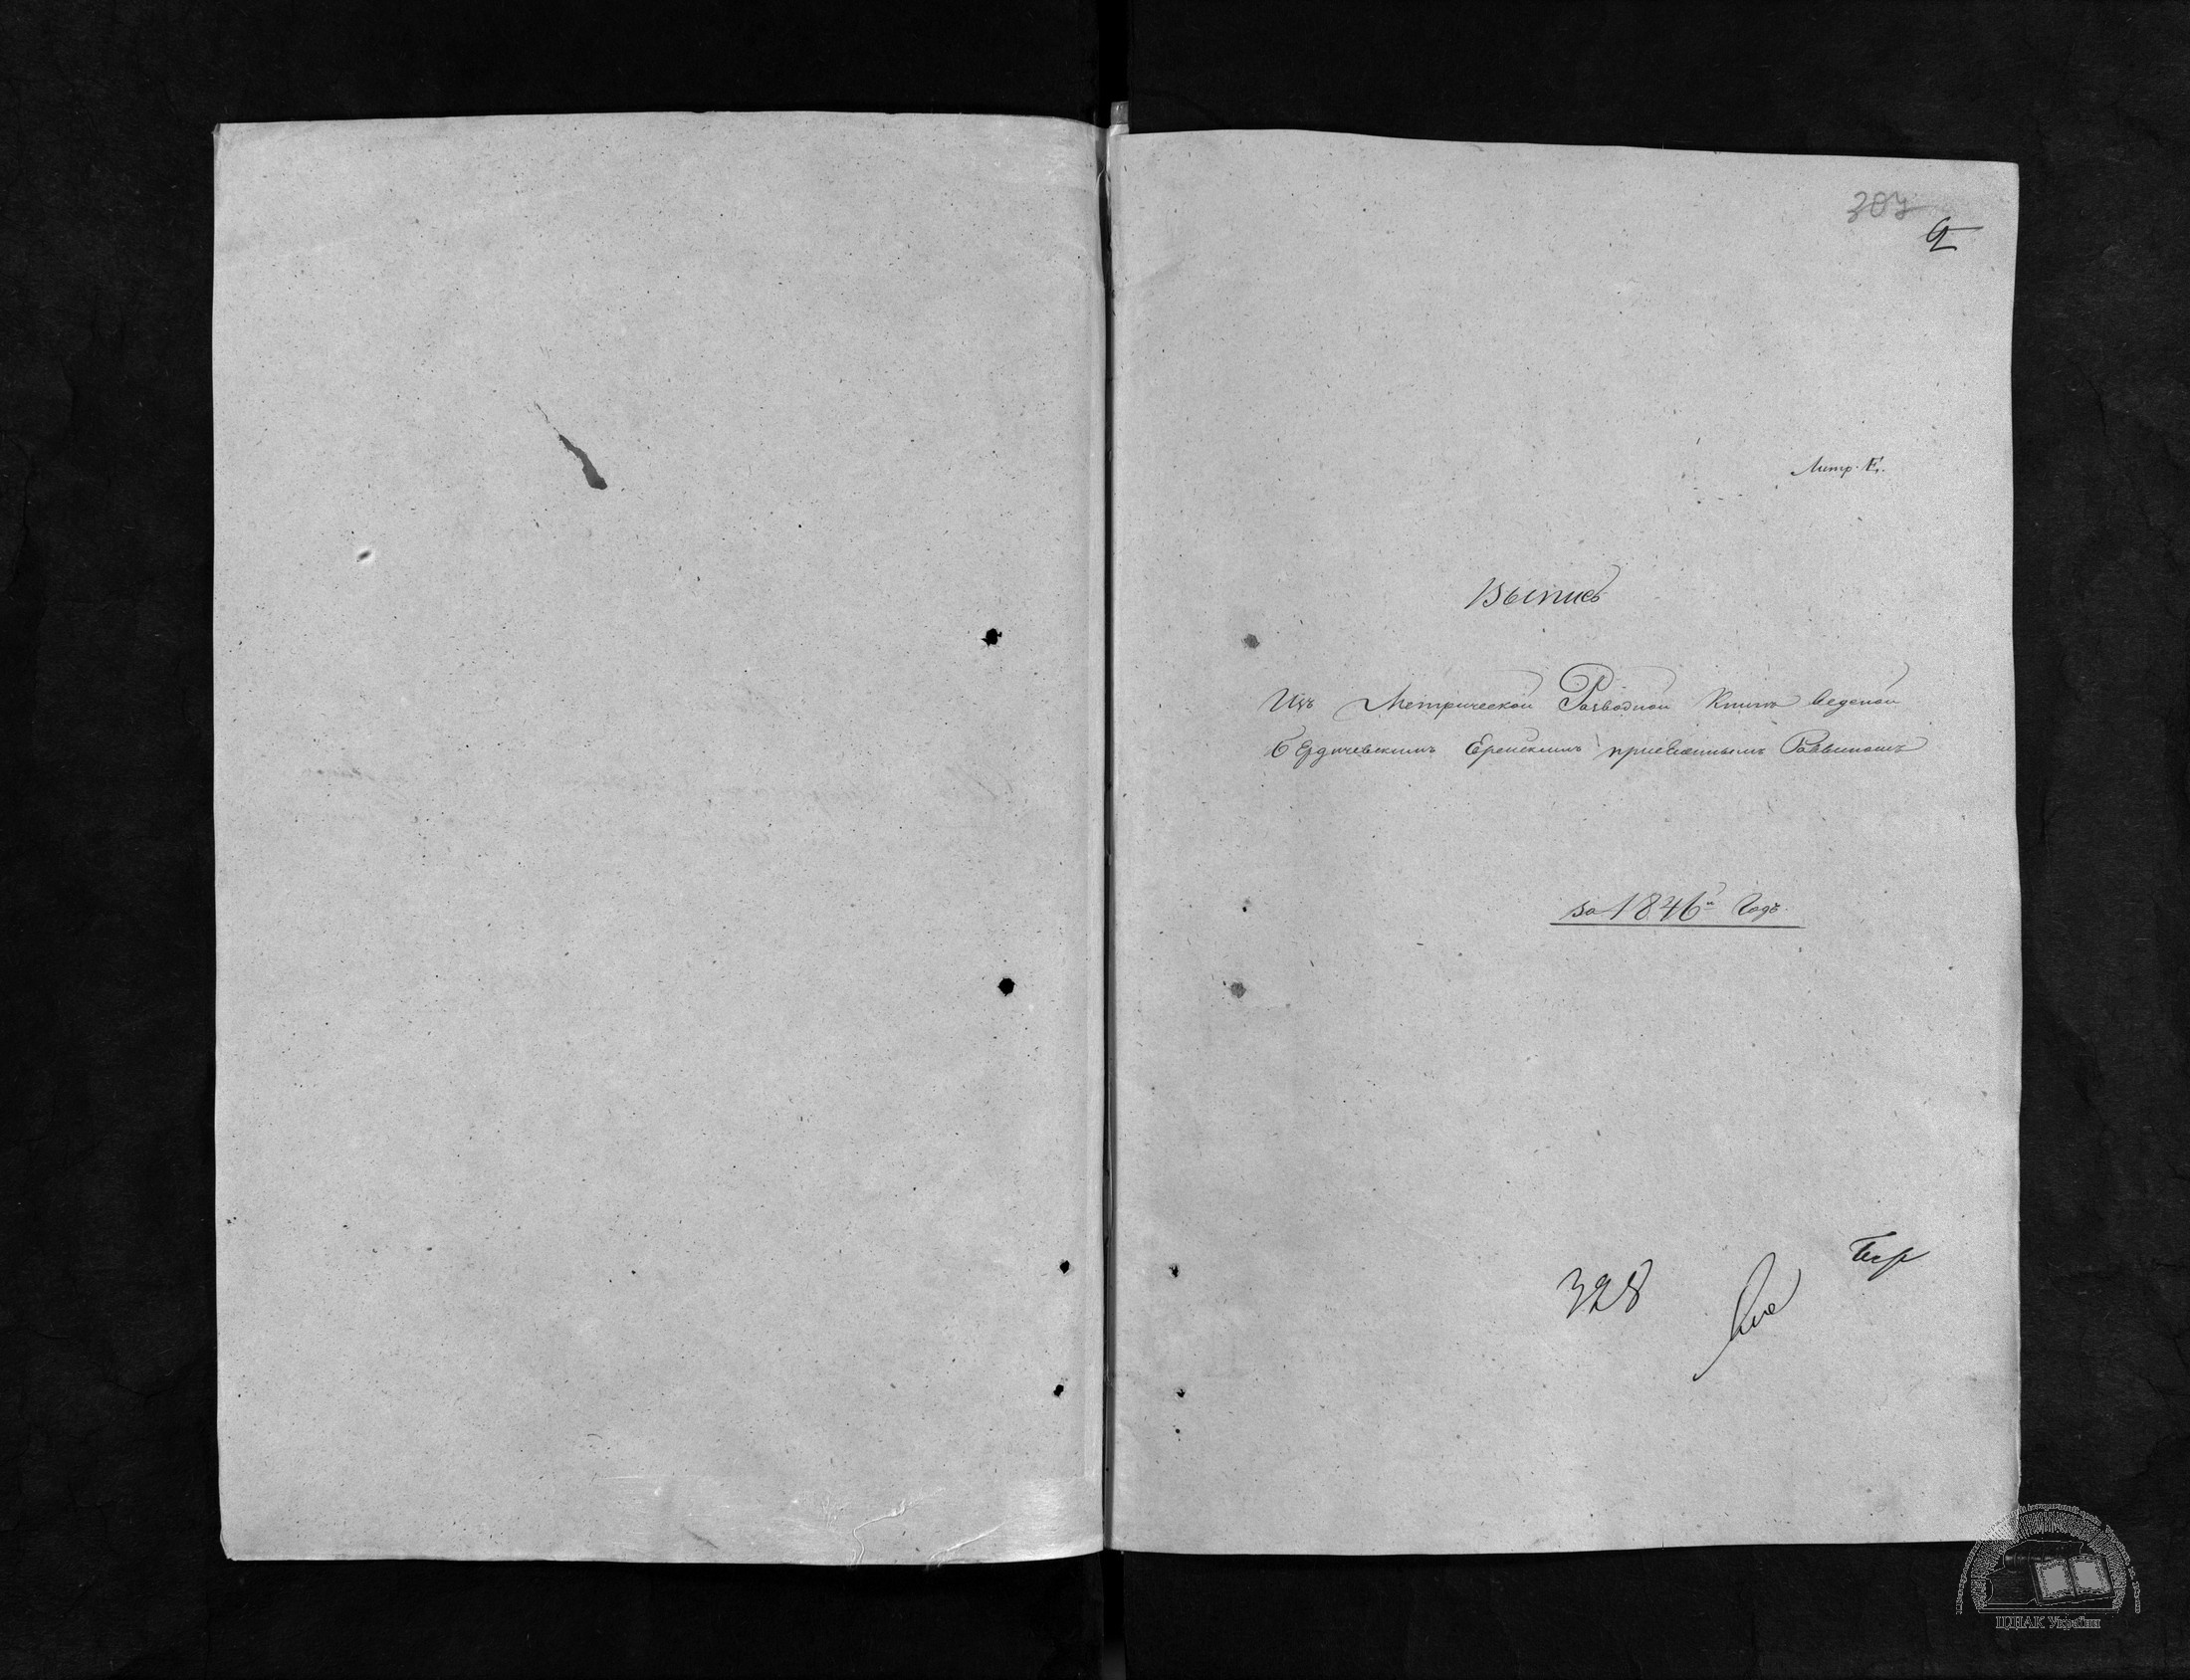 307
2
Литр. Е.
Выпись
Изъ Метрической Разводной Книги веденой
Бердичевскимъ Еврейскимъ присяжнымъ Раввиномъ
за 1846й Годъ.
328
ЦДІАК України